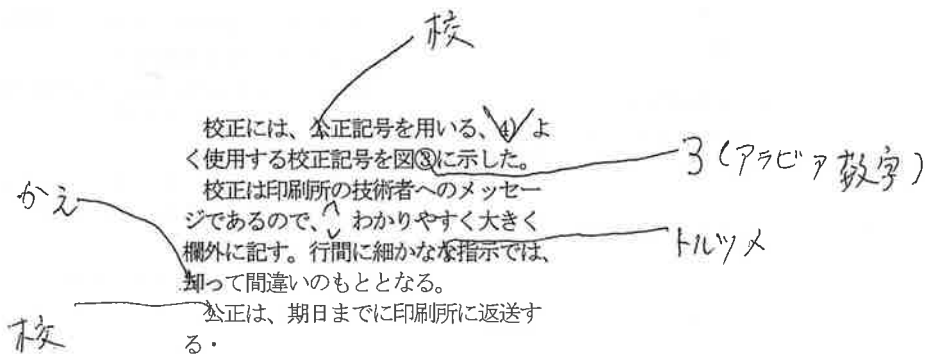 校
校正には、公正記号を用いる、4)よ
く使用する校正記号を図③に示した。
3(アラビア数字)
校正は印刷所の技術者へのメッセー
かえ
ジであるので、わかりやすく大きく
欄外に記す。行間に細かなな指示では、
トルツメ
却って間違いのもととなる。
公正は、期日までに印刷所に返送す
校
る・